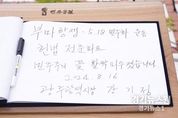 부마항쟁 - 5.18 민주화 운동
헌법 전문으로
민주주의 꽃 활짝 피우겠습니다
2024. 8. 16
광주광역시장 강기정
경기뉴스1